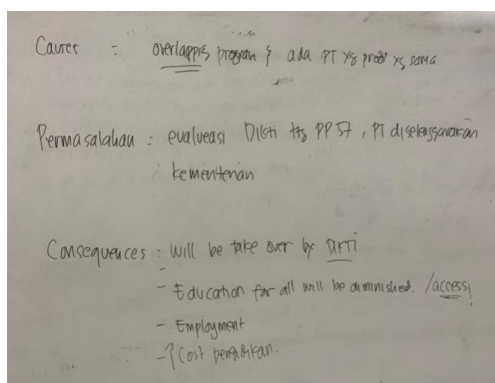 Causes = overlapping program & ada PT yg prodi yg sama
Permasalahan : evaluasi Dikti ttg PP 57, PT diselenggarakan
kementerian
Consequences : will be take over by DIKTI
- Education for all will be diminished. /access/
- Employment
- ↑ Cost pendidikan.